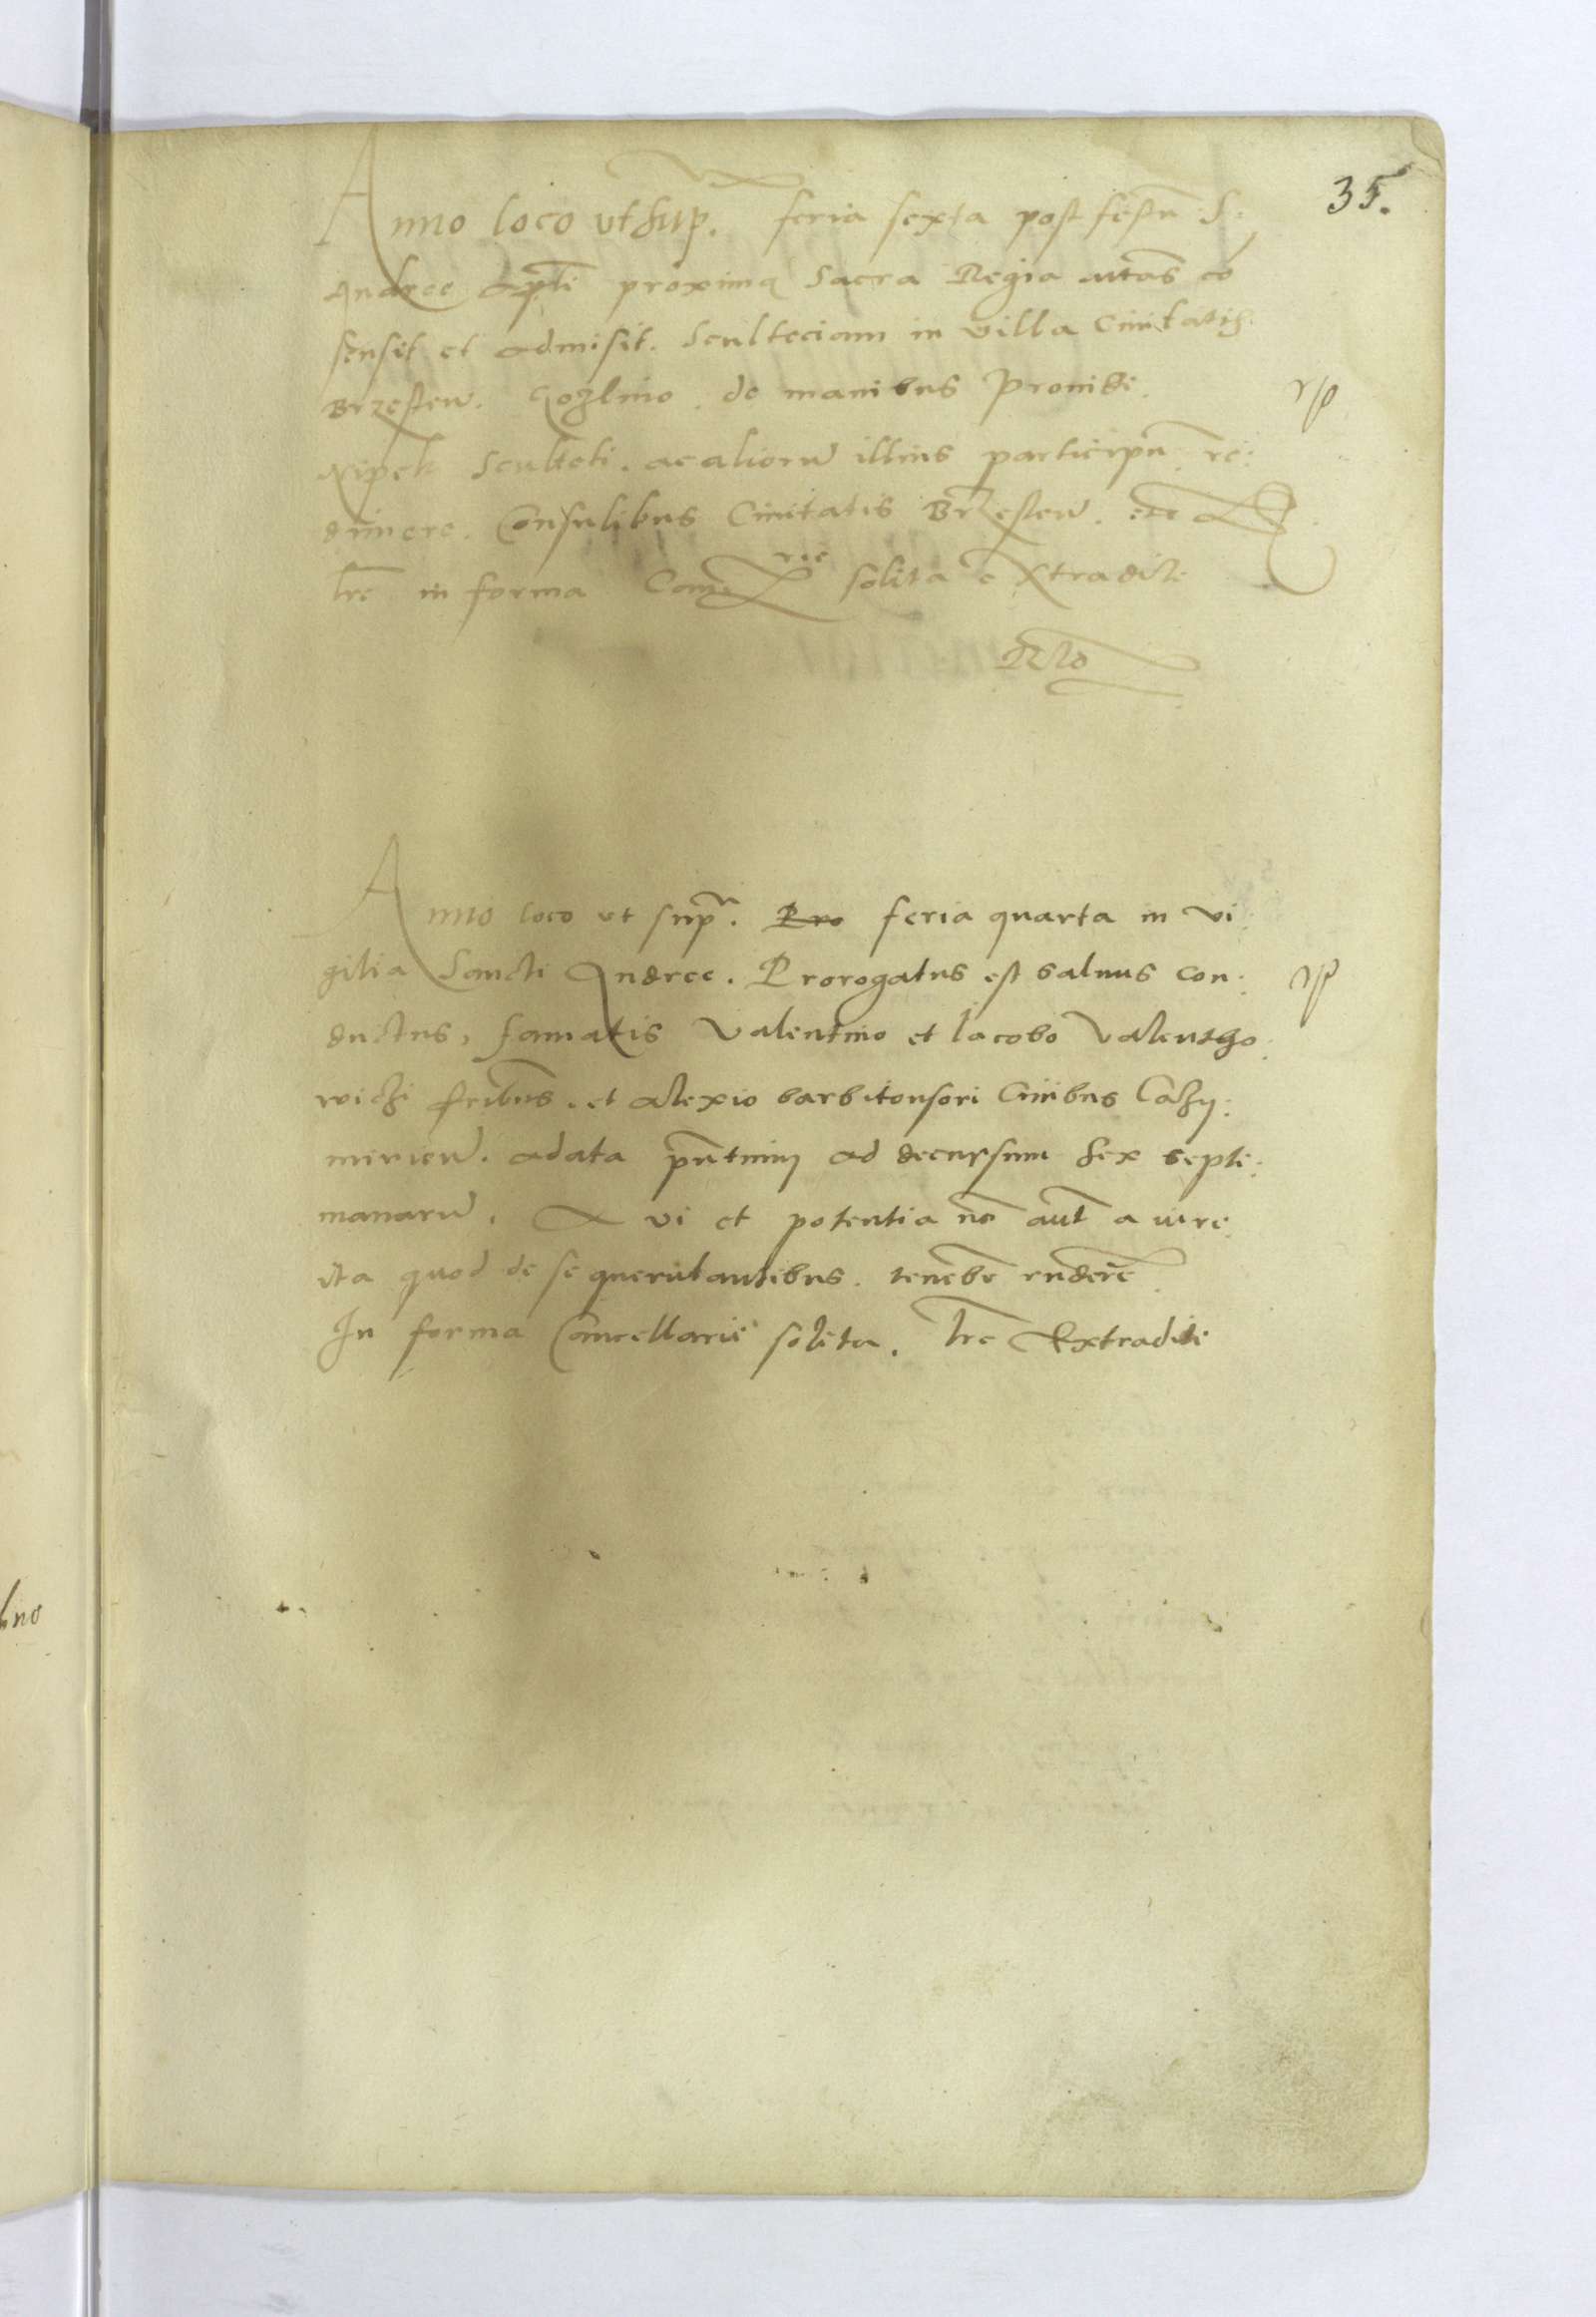 35.
Anno loco ut sup. feria sexta post festū S:
Andree apłi proxima Sacra Regia mtas cō
sensit et admisit. Scultetiam in villa Civitatis
Brzesten. Cozlino. de manibus Providi.
Scultoti. ac aliorū illius participū. re:
dimere. Consulibus Civitatis Brzesten.
lre in forma Canrie solita extradite
Rta
Anno loco ut supra. Pro feria quarta in vi:
gilia Sancti Andree. Prorogatus est salvus con:
ductus, famatis Valentino et Iacobo Valentho:
wichi fribus. et Alexio barbitonsori Civibus Cazy:
mirien. a data pntium ad decursum sex septe:
manarū. A vi et potentia nō aut a iure
ita quod de se querulantibus. tenebt rndere
In forma Cancellarie solita. lre Extradite